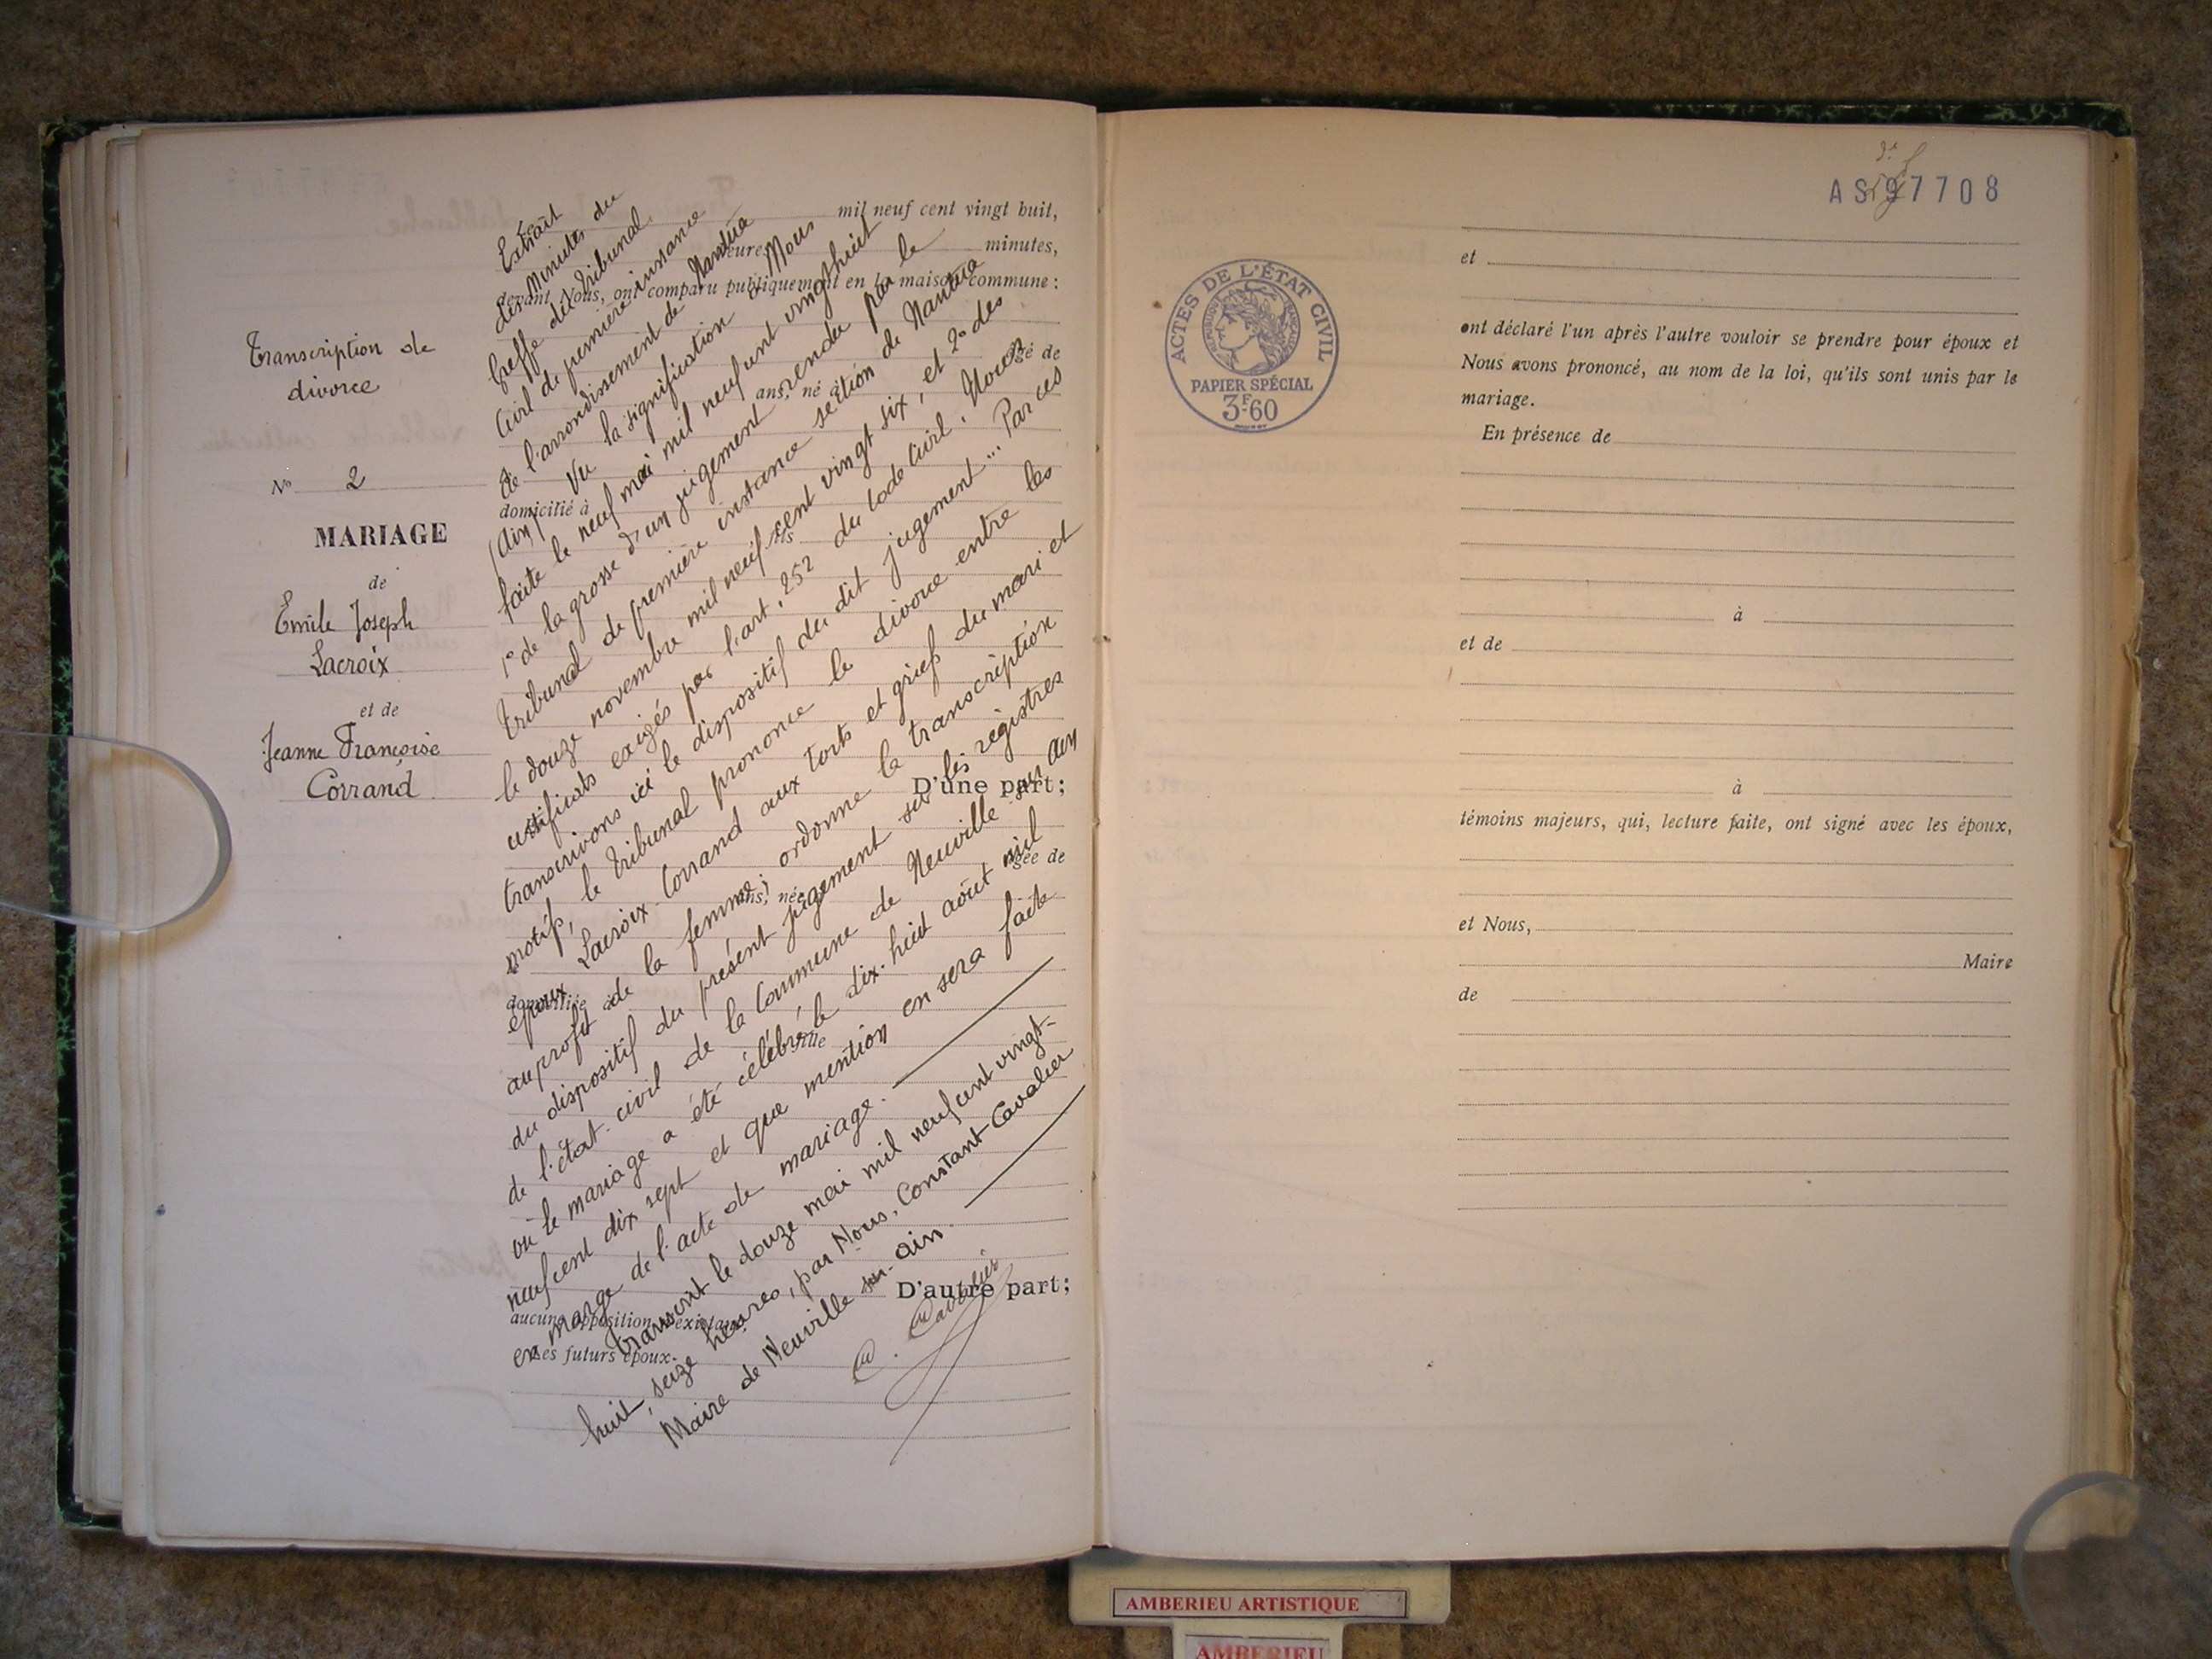 Transcription de
divorce
No 2
MARIAGE
de
Emile Joseph
Lacroix
et de
Jeanne Françoise
Corrand
mil neuf cent vingt huit,
heures minutes,
devant Nous, ont comparu publiquement en la maison commune :
âgé de
ans, né à
domicilié à
fils
D'une part;
âgée de
ans, née
domiciliée à
fille
D'autre part;
aucune opposition n'existant
Les futurs époux
Extrait
des Minutes du
Greffe du Tribunal
Civil de première instance
de l'arrondissement de Nantua
(Ain) Vu la signification à Nous
faite le neuf mai mil neuf cent vingt huit
1º de la grosse d'un jugement rendu par le
Tribunal de première instance section de Nantua
le douze novembre mil neuf cent vingt six, et 2º des
certificats exigés par l'art. 252 du Code Civil, Nous
transcrivons ici le dispositif du dit jugement ... Par ces
motifs, le Tribunal prononce le divorce entre les
époux Lacroix-Corrand aux torts et griefs du mari et
au profit de la femme; ordonne la transcription
du dispositif du présent jugement sur les registres
de l'état-civil de la Commune de Neuville sur Ain
où le mariage a été célébré le dix-huit août mil
neuf cent dix sept et que mention en sera faite
en marge de l'acte de mariage.
Transcrit le douze mai mil neuf cent vingt-
huit, seize heures, par Nous, Constant Cavalier
Maire de Neuville sur-Ain.
C. Cavalier
AS 97708
ACTES DE L'ÉTAT CIVIL
RÉPUBLIQUE FRANÇAISE
PAPIER SPÉCIAL
3F60
et
ont déclaré l'un après l'autre vouloir se prendre pour époux et
Nous avons prononcé, au nom de la loi, qu'ils sont unis par le
mariage.
En présence de
à
et de
à
témoins majeurs, qui, lecture faite, ont signé avec les époux,
et Nous,
Maire
de
AMBERIEU ARTISTIQUE
AMBERIEU